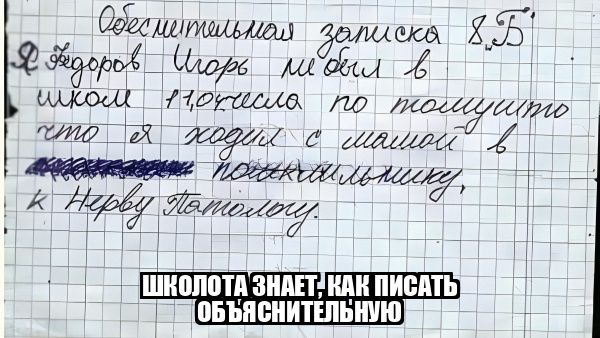 Обеснительная записка 8 „Б"
Я Фёдоров Игорь не был в
школ 11,04 числа по томушто
что я ходил с мамой в
к Нерву Патологу.
ШКОЛОТА ЗНАЕТ, КАК ПИСАТЬ
ОБЪЯСНИТЕЛЬНУЮ